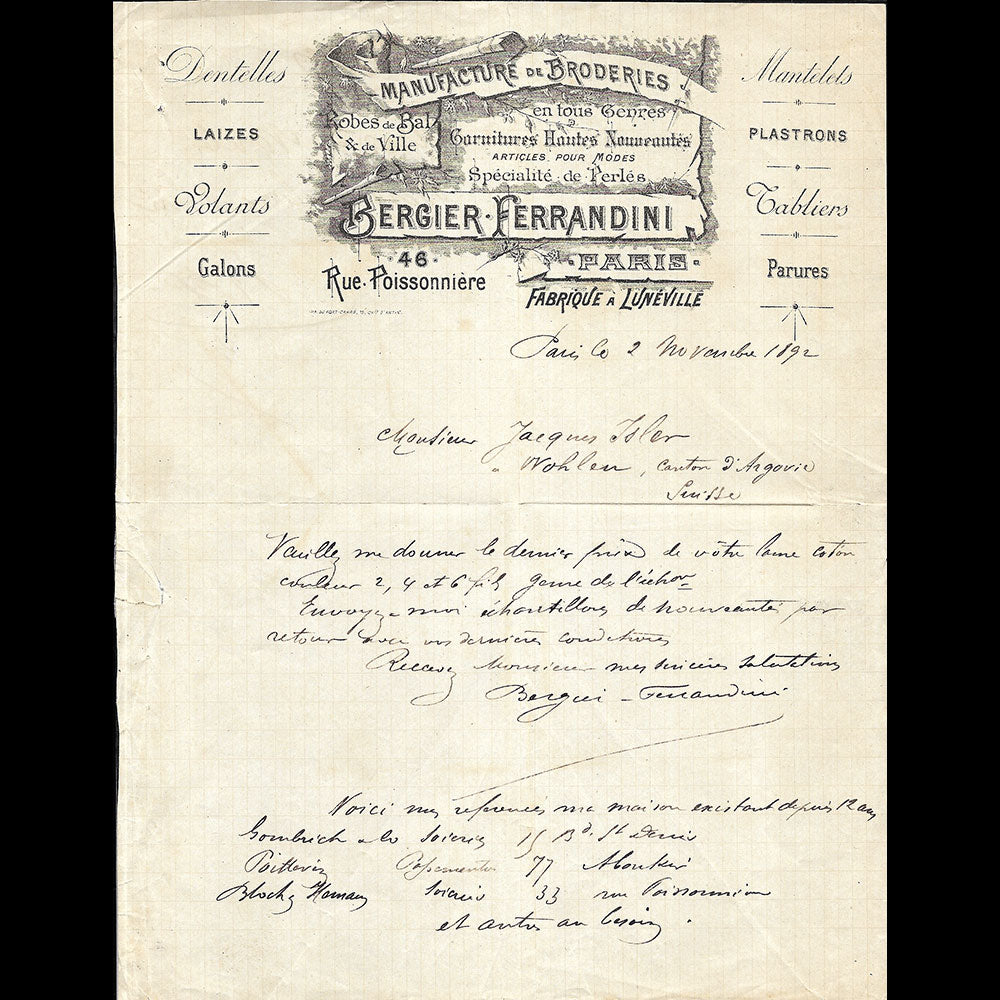 Dentelles
LAIZES
Volants
Galons
MANUFACTURE DE BRODERIES
Robes de Bal
& de Ville
en tous Genres
Garnitures Hautes Nouveautés
ARTICLES POUR MODES
Spécialité de Perlés
BERGIER-FERRANDINI
46
Rue Poissonnière
PARIS
FABRIQUE À LUNÉVILLE
Mantelets
PLASTRONS
Tabliers
Parures
Paris le 2 Novembre 1892
Monsieur Jacques Isler
Wohlen, canton d'Argovie
Suisse
Veuillez me donner le dernier prix de votre lame coton
couleur 2, 4 et 6 fils genre de l'échon
Envoyez-moi échantillons de nouveautés par
retour avec vos dernières conditions
Recevez Monsieur mes sincères salutations
Bergier-Ferrandini
Voici mes références ma maison existant depuis 12 ans
Soieries 15 Bd. St Denis
Poittevin 77 Aboukir
Bloch Soieries 33 rue Poissonnière
et autres au besoin.